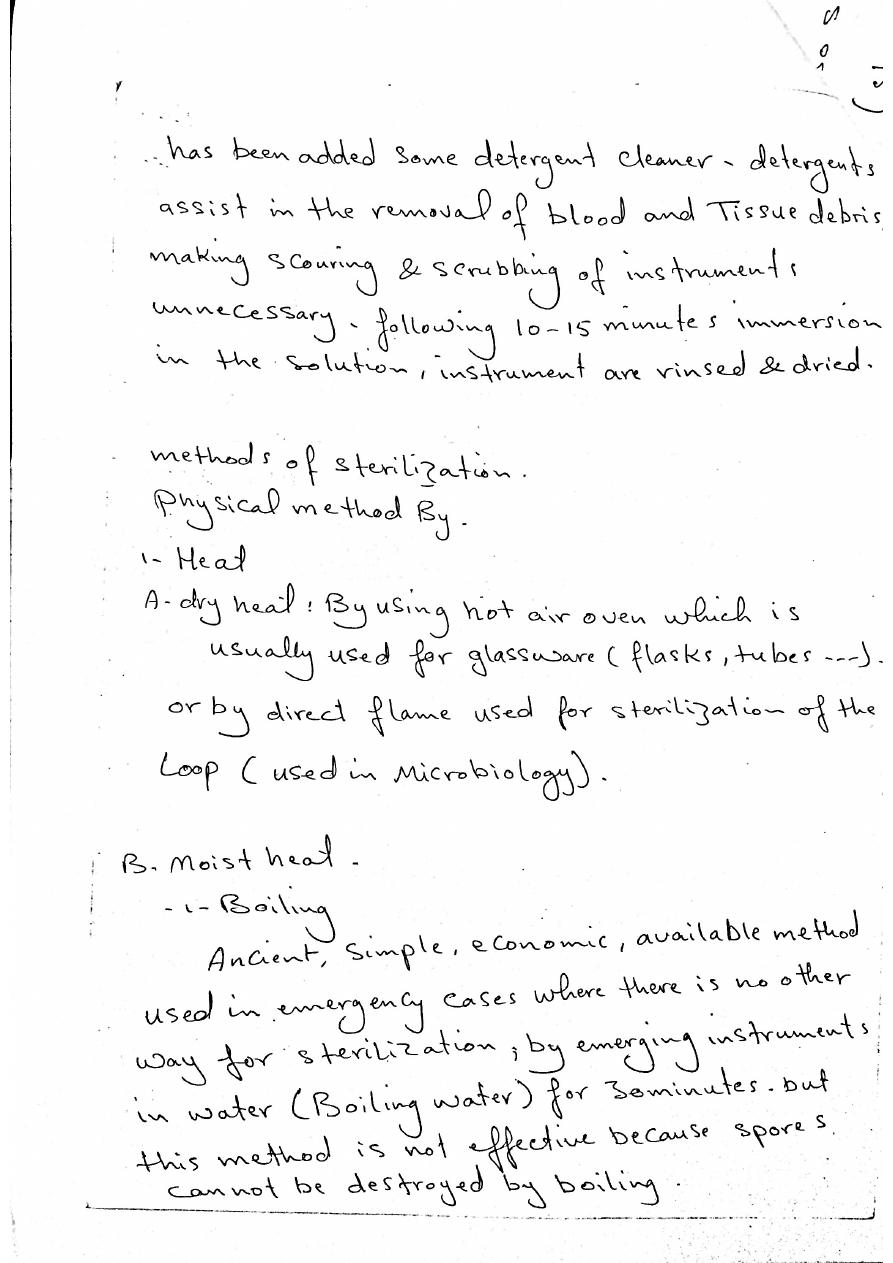 has been added some detergent cleaner - detergents
assist in the removal of blood and Tissue debris
making scouring & scrubbing of instruments
unnecessary - following 10-15 minutes immersion
in the solution, instrument are rinsed & dried.
methods of sterilization.
Physical method By.
1- Heat
A- dry heat: By using hot air oven which is
usually used for glassware (flasks, tubes ---).
or by direct flame used for sterilization of the
Loop (used in Microbiology).
B. Moist heat.
-1- Boiling
Ancient, Simple, economic, available method
used in emergency cases where there is no other
way for sterilization, by emerging instruments
in water (Boiling water) for 30 minutes. but
this method is not effective because spores
cannot be destroyed by boiling.